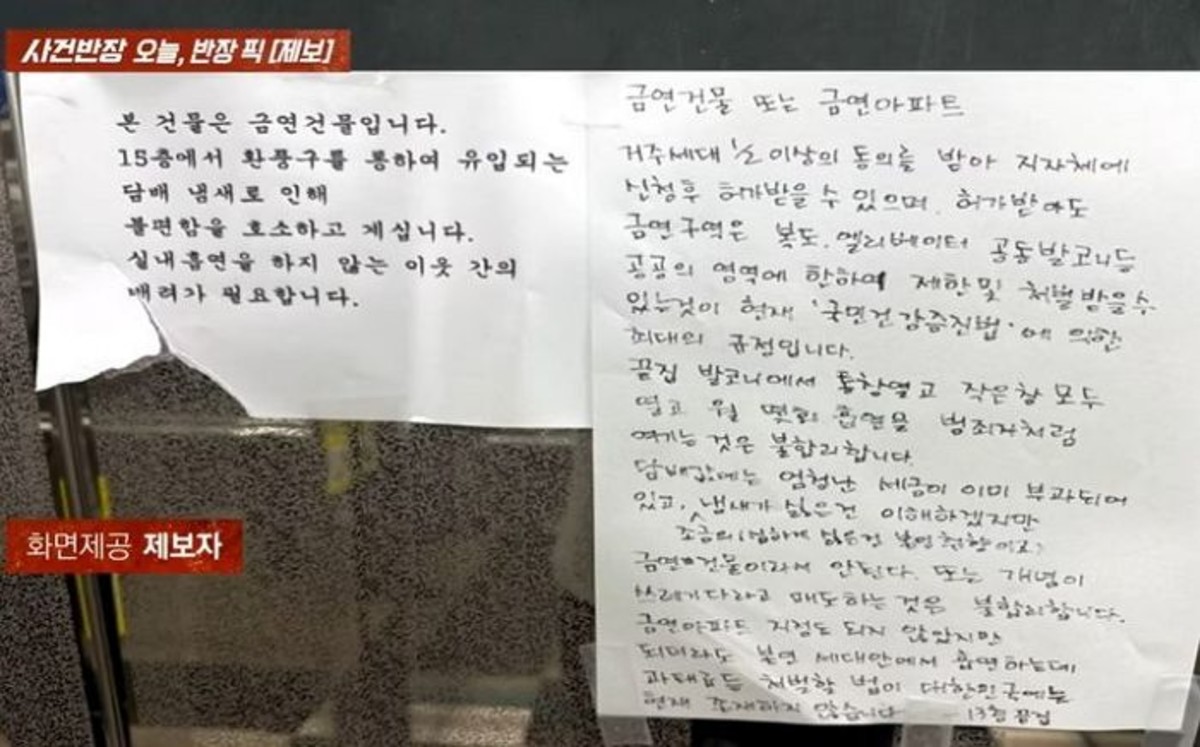 사건반장 오늘, 반장 픽 [제보]
본 건물은 금연건물입니다.
15층에서 환풍구를 통하여 유입되는
담배 냄새로 인해
불편함을 호소하고 계십니다.
실내흡연을 하지 않는 이웃 간의
배려가 필요합니다.
화면제공 제보자
금연건물 또는 금연아파트
거주세대 ½ 이상의 동의를 받아 지자체에
신청후 허가받을 수 있으며, 허가받아도
금연구역은 복도, 엘리베이터 공동발코니등
공공의 영역에 한하여 제한및 처벌받을수
있는것이 현재 '국민건강증진법'에 의한
최대의 규정입니다.
끝집 발코니에서 통창열고 작은창 모두
열고 월 몇회 흡연을 범죄자처럼
여기는 것은 불합리합니다.
담배값에는 엄청난 세금이 이미 부과되어
있고, 냄새가 싫은건 이해하겠지만
싫은건 본인
금연건물이라서 안된다. 또는 개념이
쓰레기다라고 매도하는것은 불합리합니다.
금연아파트 지정도 되지 않았지만
되더라도 본인 세대안에서 흡연하는데
과태료등 처벌할 법이 대한민국에는
현재 존재하지 않습니다 13층 끝집